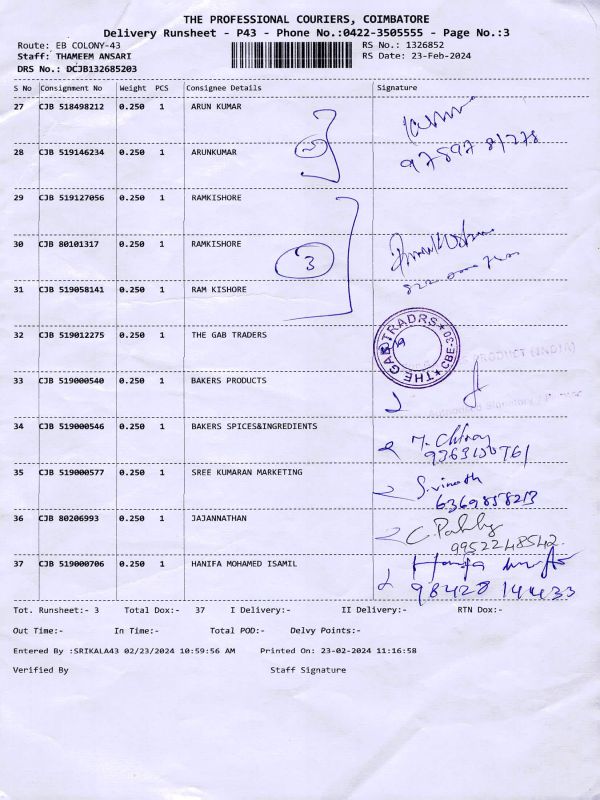 THE PROFESSIONAL COURIERS, COIMBATORE
Delivery Runsheet - P43 - Phone No.:0422-3505555 - Page No.:3
Route: EB COLONY-43 RS No.: 1326852
Staff: THAMEEM ANSARI RS Date: 23-Feb-2024
DRS No.: DCJB132685203
S No Consignment No Weight PCS Consignee Details Signature
27 CJB 518498212 0.250 1 ARUN KUMAR
28 CJB 519146234 0.250 1 ARUNKUMAR
29 CJB 519127056 0.250 1 RAMKISHORE
30 CJB 80101317 0.250 1 RAMKISHORE
3
31 CJB 519058141 0.250 1 RAM KISHORE
32 CJB 519012275 0.250 1 THE GAB TRADERS
THE GAB TRADRS ★ CBE-30 ★
33 CJB 519000540 0.250 1 BAKERS PRODUCTS
34 CJB 519000546 0.250 1 BAKERS SPICES&INGREDIENTS
35 CJB 519000577 0.250 1 SREE KUMARAN MARKETING
S.vinoth
6369858213
36 CJB 80206993 0.250 1 JAJANNATHAN
9952248542
37 CJB 519000706 0.250 1 HANIFA MOHAMED ISAMIL
Hanifa
98428 14433
Tot. Runsheet:- 3 Total Dox:- 37 I Delivery:- II Delivery:- RTN Dox:-
Out Time:- In Time:- Total POD:- Delvy Points:-
Entered By :SRIKALA43 02/23/2024 10:59:56 AM Printed On: 23-02-2024 11:16:58
Verified By Staff Signature